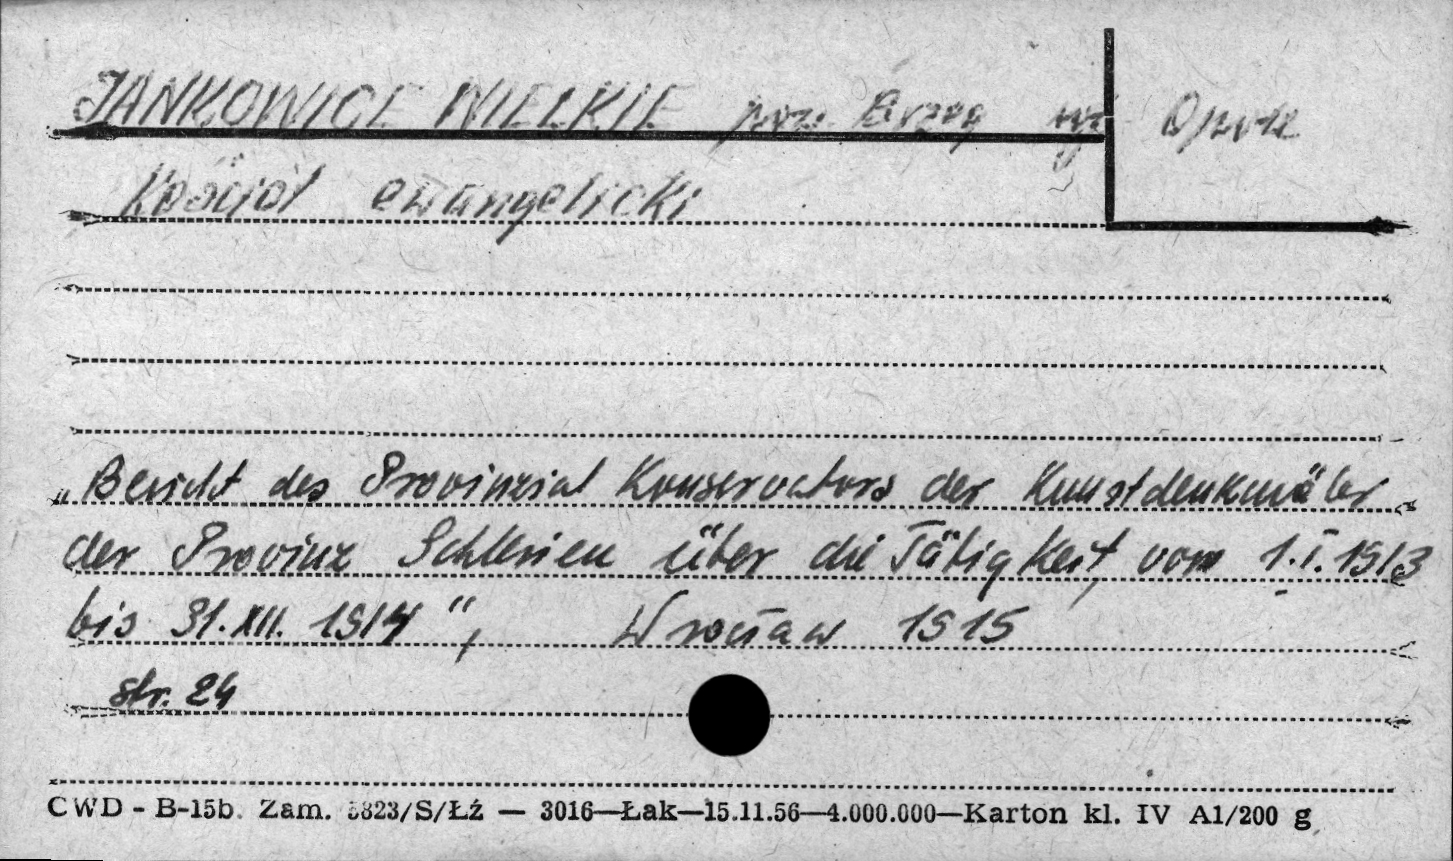 JANKOWICE WIELKIE pow. Brzeg woj. Opole
Kościół ewangelicki
„Bericht des Provinzial Konservators der Kunstdenkmäler
der Provinz Schlesien über die Tätigkeit vom 1.I.1913
bis 31.XII. 1914", Wrocław 1915
str. 24
CWD - B-15b. Zam. 5823/S/Łź — 3016—Łak—15.11.56—4.000.000—Karton kl. IV A1/200 g